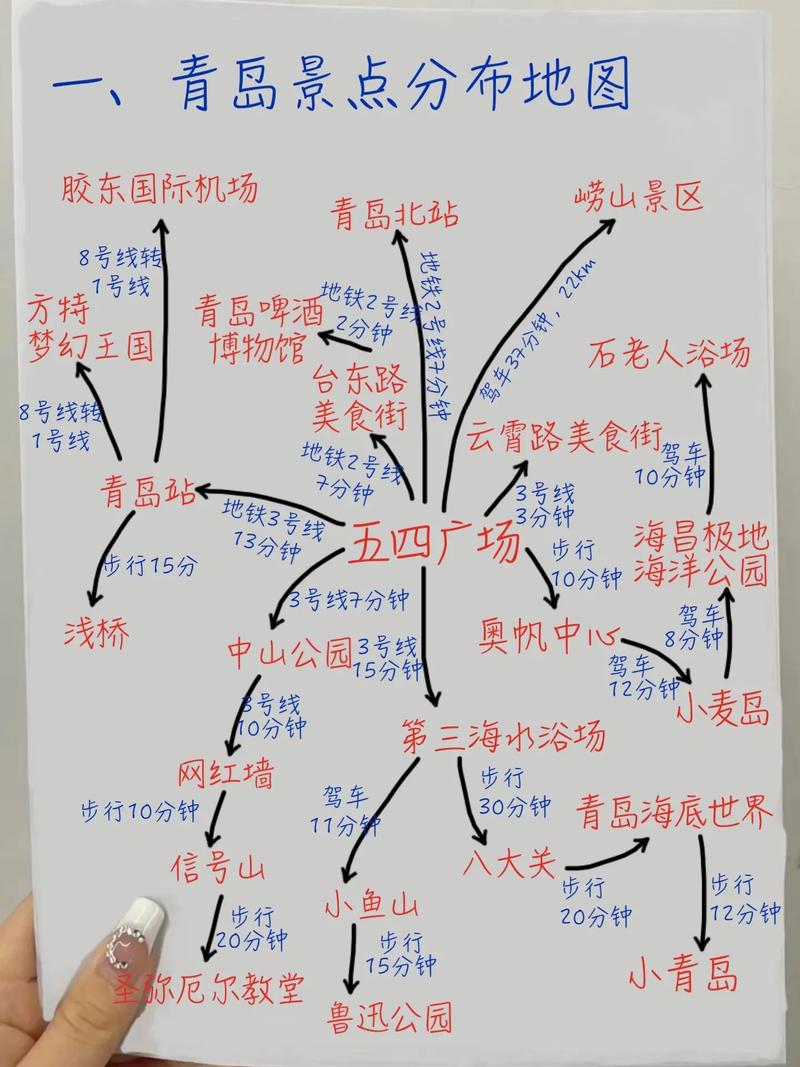 一、青岛景点分布地图
胶东国际机场
青岛北站
崂山景区
8号线转
1号线
地铁2号线7分钟
驾车37分钟，22km
方特
梦幻王国
青岛啤酒
博物馆
地铁2号线
2分钟
石老人浴场
台东路
美食街
8号线转
1号线
云霄路美食街
地铁2号线
7分钟
驾车
10分钟
青岛站
地铁3号线
13分钟
3号线
3分钟
五四广场
海昌极地
海洋公园
步行15分
步行
10分钟
3号线7分钟
浅桥
中山公园
3号线
15分钟
奥帆中心
驾车
8分钟
驾车
12分钟
小麦岛
3号线
10分钟
第三海水浴场
网红墙
驾车
11分钟
步行
30分钟
步行10分钟
青岛海底世界
信号山
八大关
小鱼山
步行
20分钟
步行
12分钟
步行
20分钟
步行
15分钟
小青岛
圣弥厄尔教堂
鲁迅公园